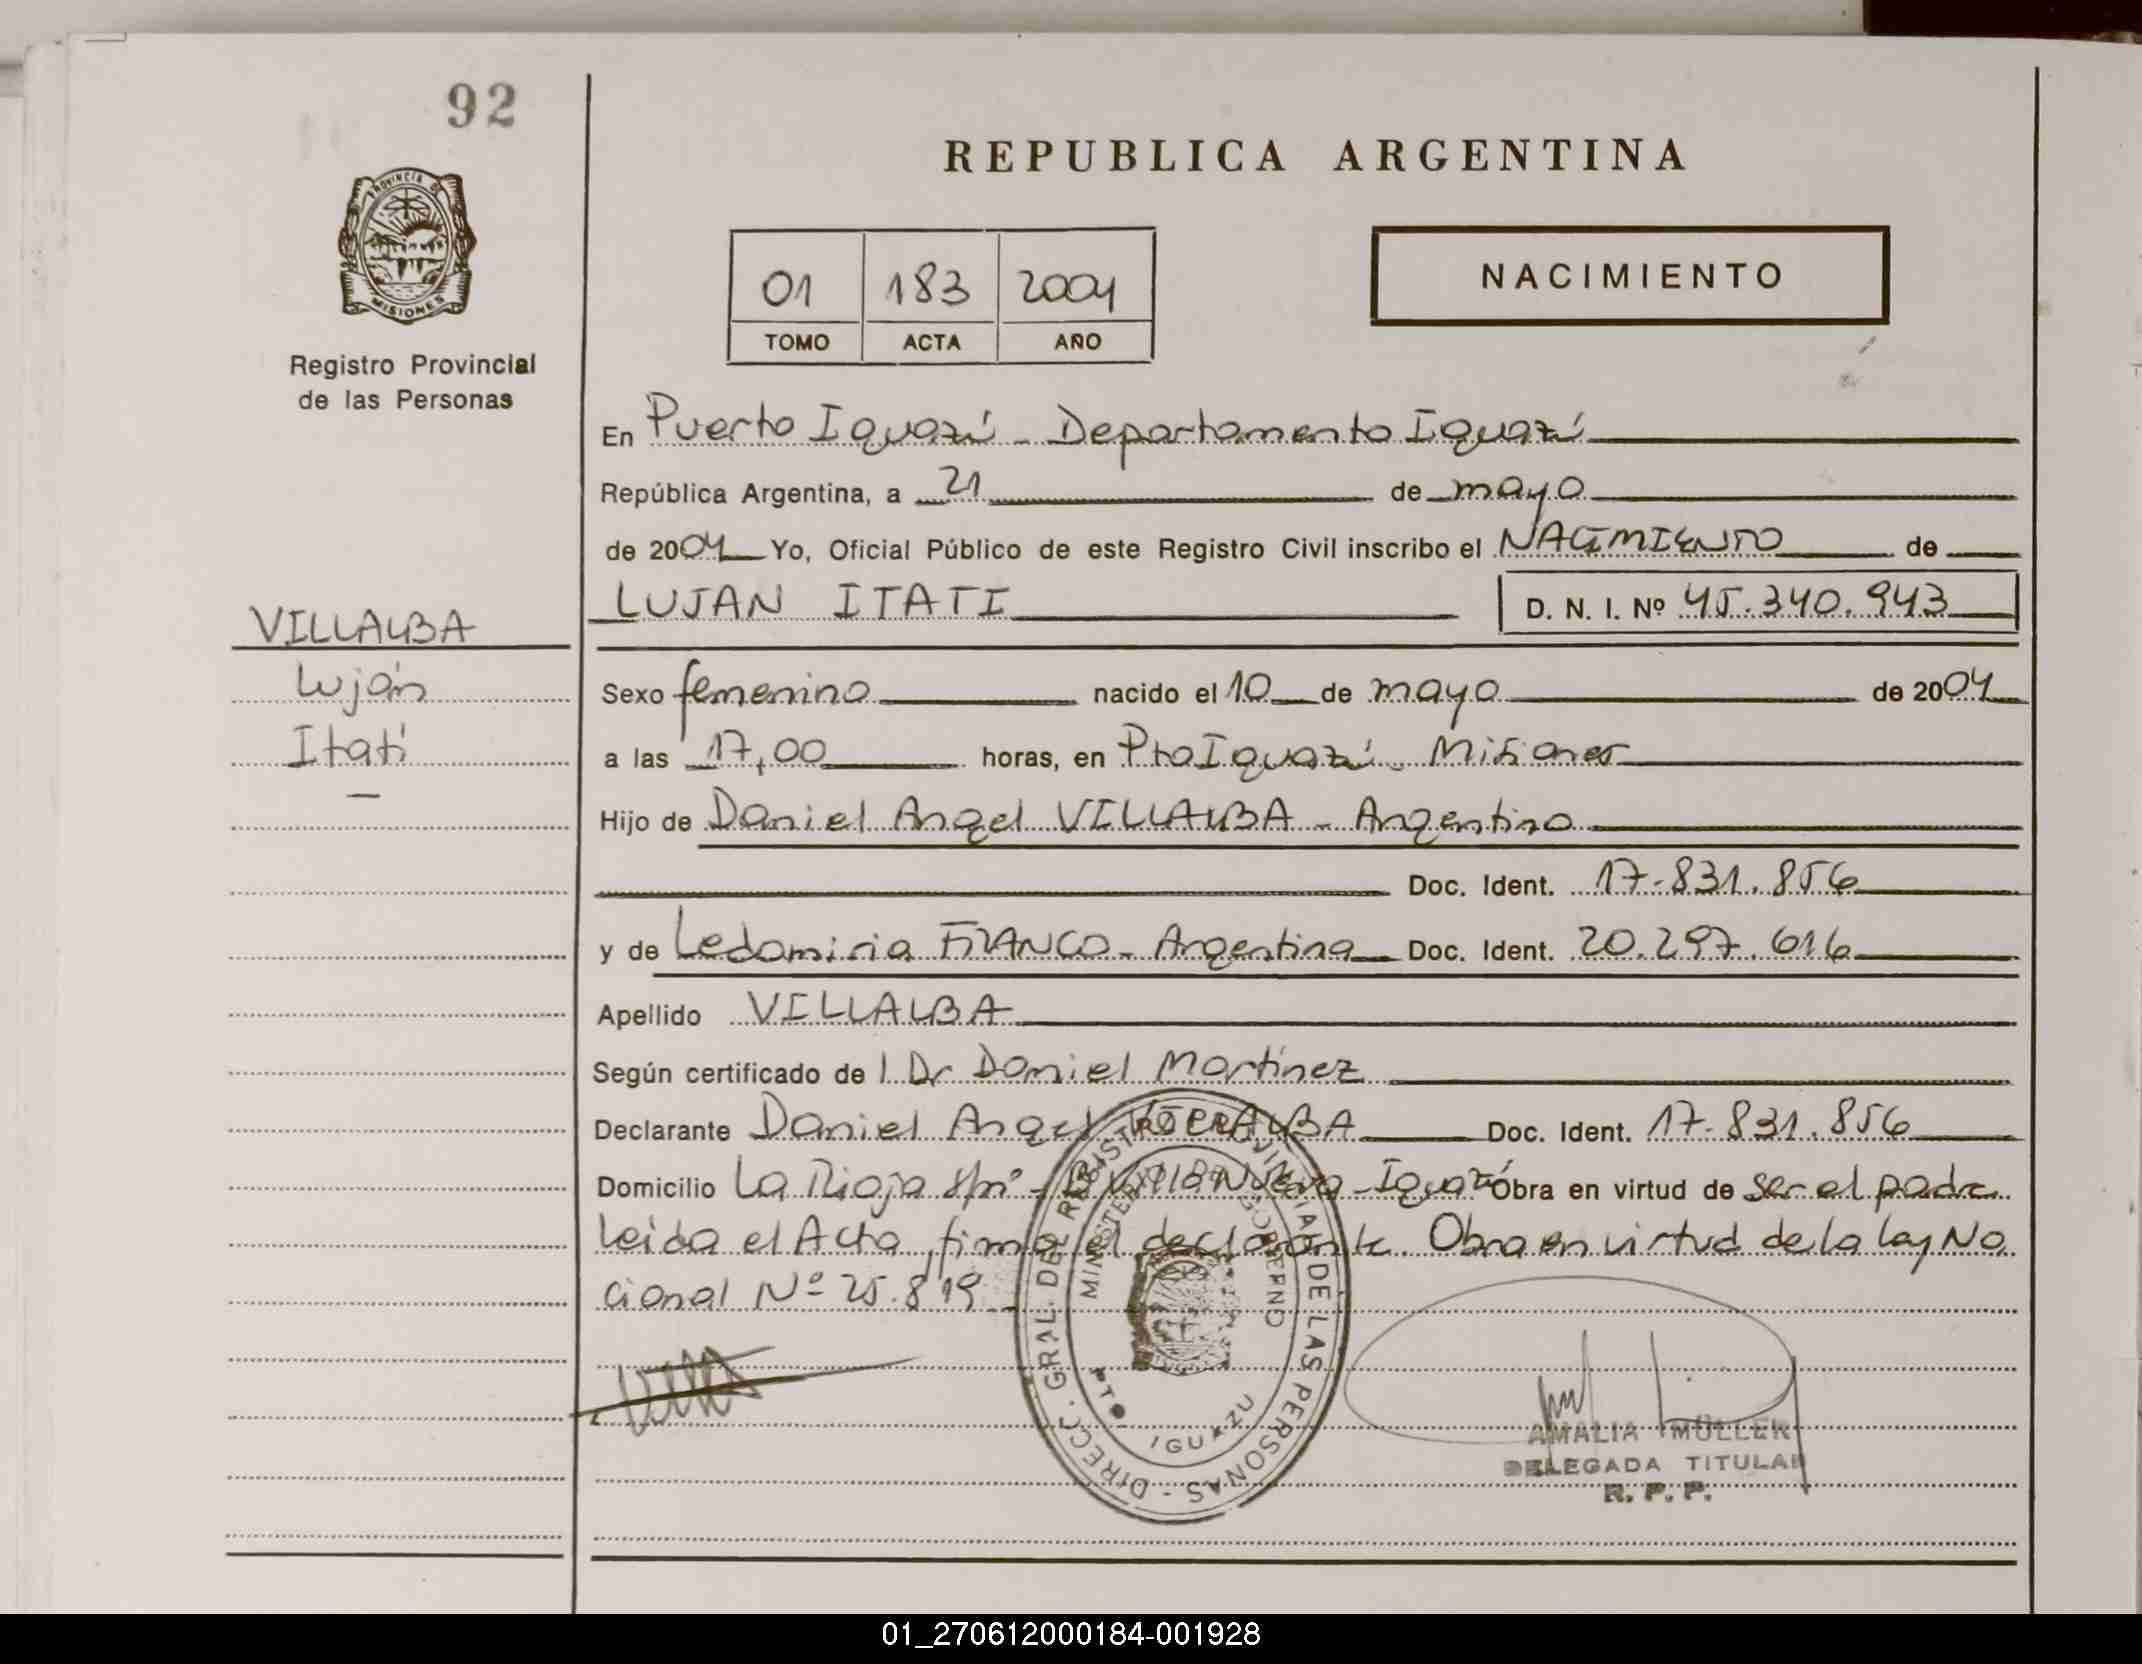 92
REPUBLICA ARGENTINA
PROVINCIA DE
MISIONES
01 183 2004
TOMO ACTA AÑO
NACIMIENTO
Registro Provincial
de las Personas
En Puerto Iguazú - Departamento Iguazú
República Argentina, a 21 de mayo
de 2004 Yo, Oficial Público de este Registro Civil inscribo el NACIMIENTO de
LUJAN ITATI D. N. I. Nº 45.340.943
VILLALBA
Luján
Itatí
Sexo femenino nacido el 10 de mayo de 2004
a las 17,00 horas, en Pto Iguazú - Misiones
Hijo de Daniel Angel VILLALBA - Argentino
Doc. Ident. 17.831.856
y de Ledomiria FRANCO - Argentina Doc. Ident. 20.297.616
Apellido VILLALBA
Según certificado de l Dr Daniel Martínez
Declarante Daniel Angel VILLALBA Doc. Ident. 17.831.856
Domicilio La Rioja s/nº - Bº Villa Nueva - Iguazú Obra en virtud de ser el padre
Leida el Acta, firma el declarante. Obra en virtud de la ley Na
cional Nº 25.819
DIRECC. GRAL. DEL REGISTRO PROVINCIAL DE LAS PERSONAS -
MINISTERIO DE GOBIERNO
PTO IGUAZU
AMALIA MÜLLER
DELEGADA TITULAR
R. P. P.
01_270612000184-001928